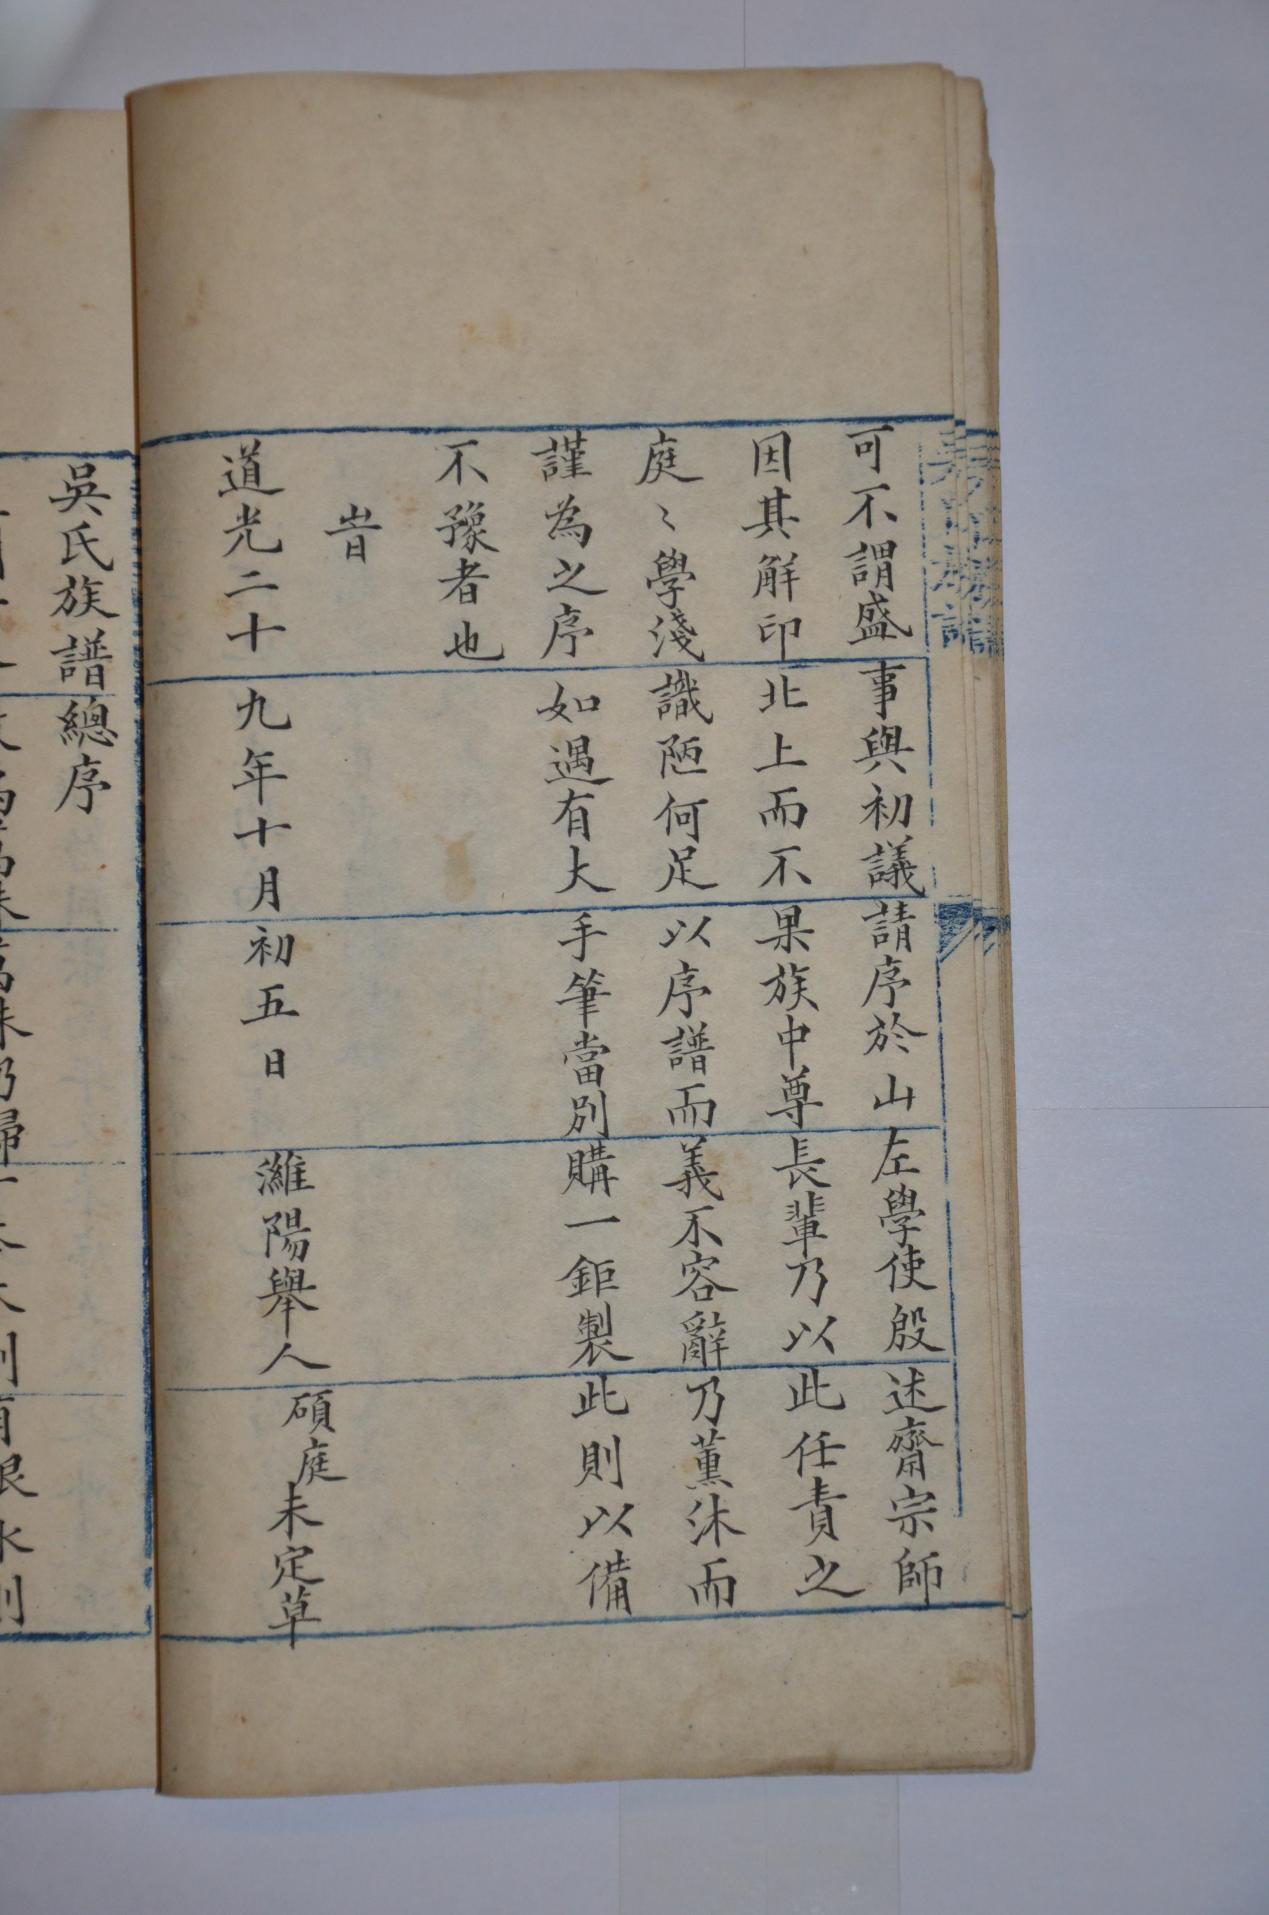 可不謂盛事與初議請序於山左學使殷述齋宗師
因其解印北上而不果族中尊長輩乃以此任責之
庭〻學淺識陋何足以序譜而義不容辭乃薰沐而
謹為之序如遇有大手筆當別購一鉅製此則以備
不豫者也
旹
道光二十九年十月初五日濰陽舉人碩庭未定草
吳氏族譜總序